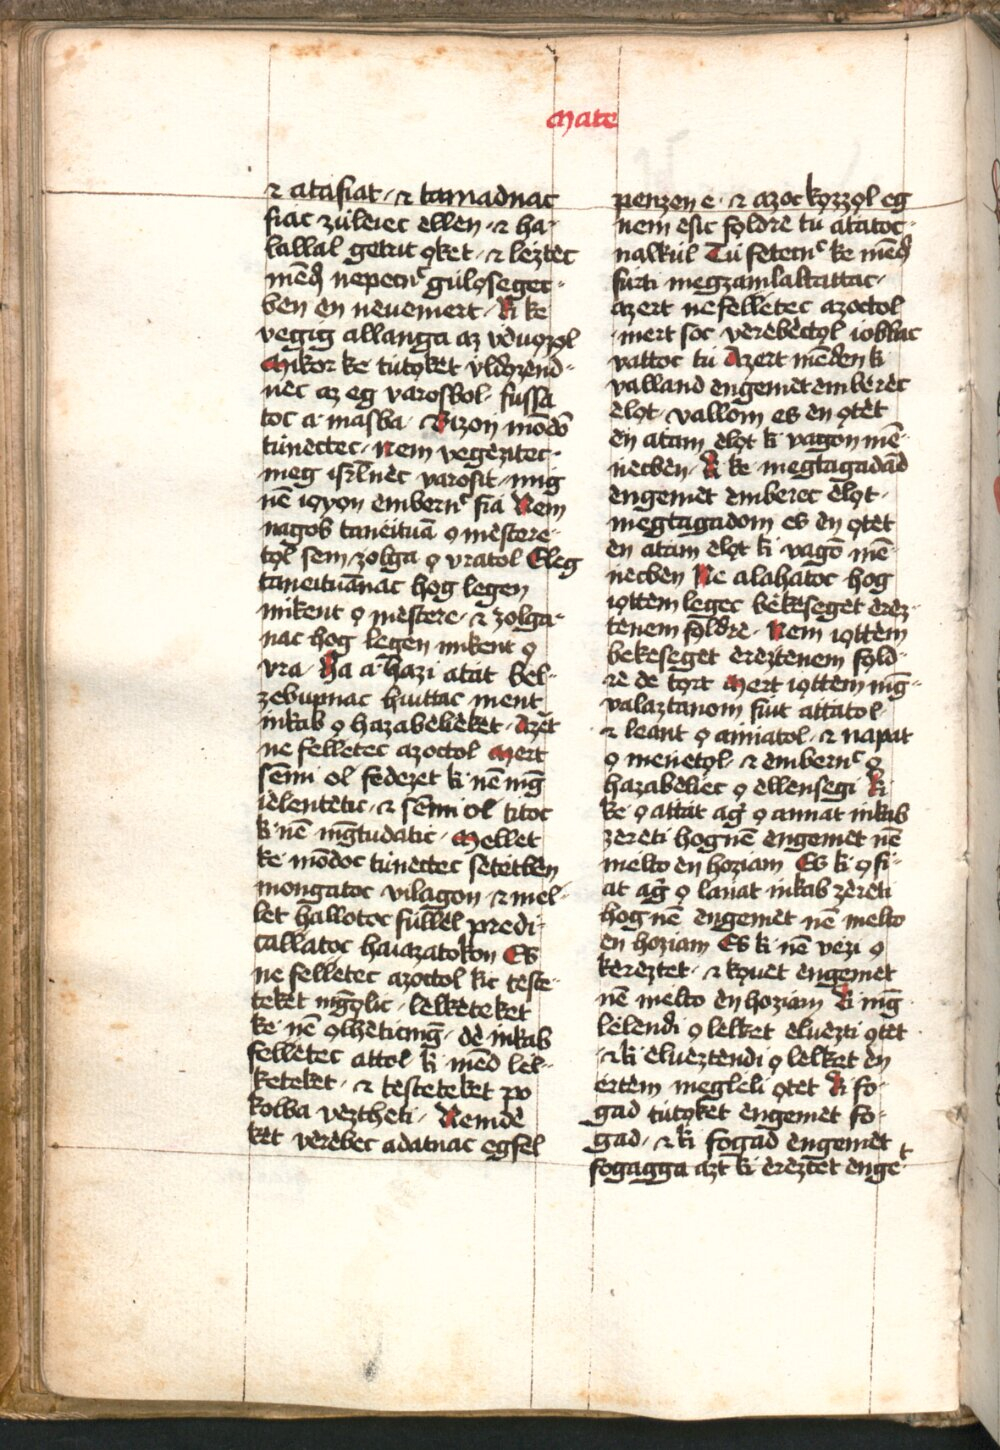 Mate
⁊ atafiat · ⁊ tamadnac
fiac zúleiec ellen · ⁊ ha-
lallal getric ọket · ⁊ leztec
mēđ nepecnᶜ gúlọseget-
ben en neuemert · Ki ke
vegig allanga az vdúọzọl
Mikor ke tútọket vldọzend-
nec az eg varosbol · fussa
toc a masba · Bizoń mōdō
túnectec · nem vegeʒitec-
meg isrl̄nec varosit · mig
nē iọuọn embernᶜ fia Nem
nagob taneituā ọ mèstere-
tọl sem zolga ọ vratol Eleg
taneituāńac hog legen
mikent ọ mestere · ⁊ zolga-
nac hog legen mikent ọ
vra · Ha a hazi atat bel-
zebupnac hiuttac ment
inkab ọ hazabelieket · Azèt
ne fellètec azoctol Mert
sèmi ol fedezet ki nē mḡ
ielentètic · ⁊ sèmi ol titoc
ki nē mḡtudatic · Mellet
ke mōdoc túnectec setetben
mongatoc vilagon · ⁊ mel-
let hallotoc fúllel predi-
callatoc haiazatokon Es
ne felletec azoctol kic teste-
teket mḡọlic · lelketeket
ke nē ọlhètic mḡ · de inkab
felletec attol ki mēd lel-
keteket · ⁊ testeteket po
kolba veztheti · Nemde
ket verebec adatnac egfel
penzen e · ⁊ azoc kọzzọl eg
nem esic fọldre tú atatoc-
nalkúl Tú fètecnᶜ ke mēđ
fúrti megzamlaltattac ·
azert ne felletec azoctol
· mert soc verebectọl iobbac
vattoc tú Azert mēden ki
valland engemet emberec
elọt · vallom es en ọtet
en atam elọt ki vagon mē-
necben · Ki ke megtagadād
engemet emberec elọt ·
megtagadom es en ọtet
en atam elọt ki vagō mē-
necben Ne alahatoc hog
iọttem legec bekeseget erez-
tenem fọldre · Nem iọttem
bekeseget ereztenem fọld-
re de tọrt Mert iọttem mḡ-
valaztanom fiut attatol ·
⁊ leant ọ annatol · ⁊ napat
ọ menetọl · ⁊ embernᶜ ọ
hazabeliec ọ ellensegi Ki
ke ọ attat ag̉ ọ annat inkab
zereti hognē engemet nē
melto en hoziam Es ki ọ fi-
at ag̉ ọ lanat inkab zereti
hog nē engemet nē melto
en hoziam Es ki nē vezi ọ
kereztet · ⁊ kọuet engemet
nē melto en hoziam Ki mḡ
lelendi ọ lelket eluezti ọtet
· ⁊ ki elueztendi ọ lelket en
ertem megleli ọtet Ki fo-
gad tútọket engemet fo-
gad · ⁊ ki fogad engemet
fogagga azt ki ereztet engeᵗ